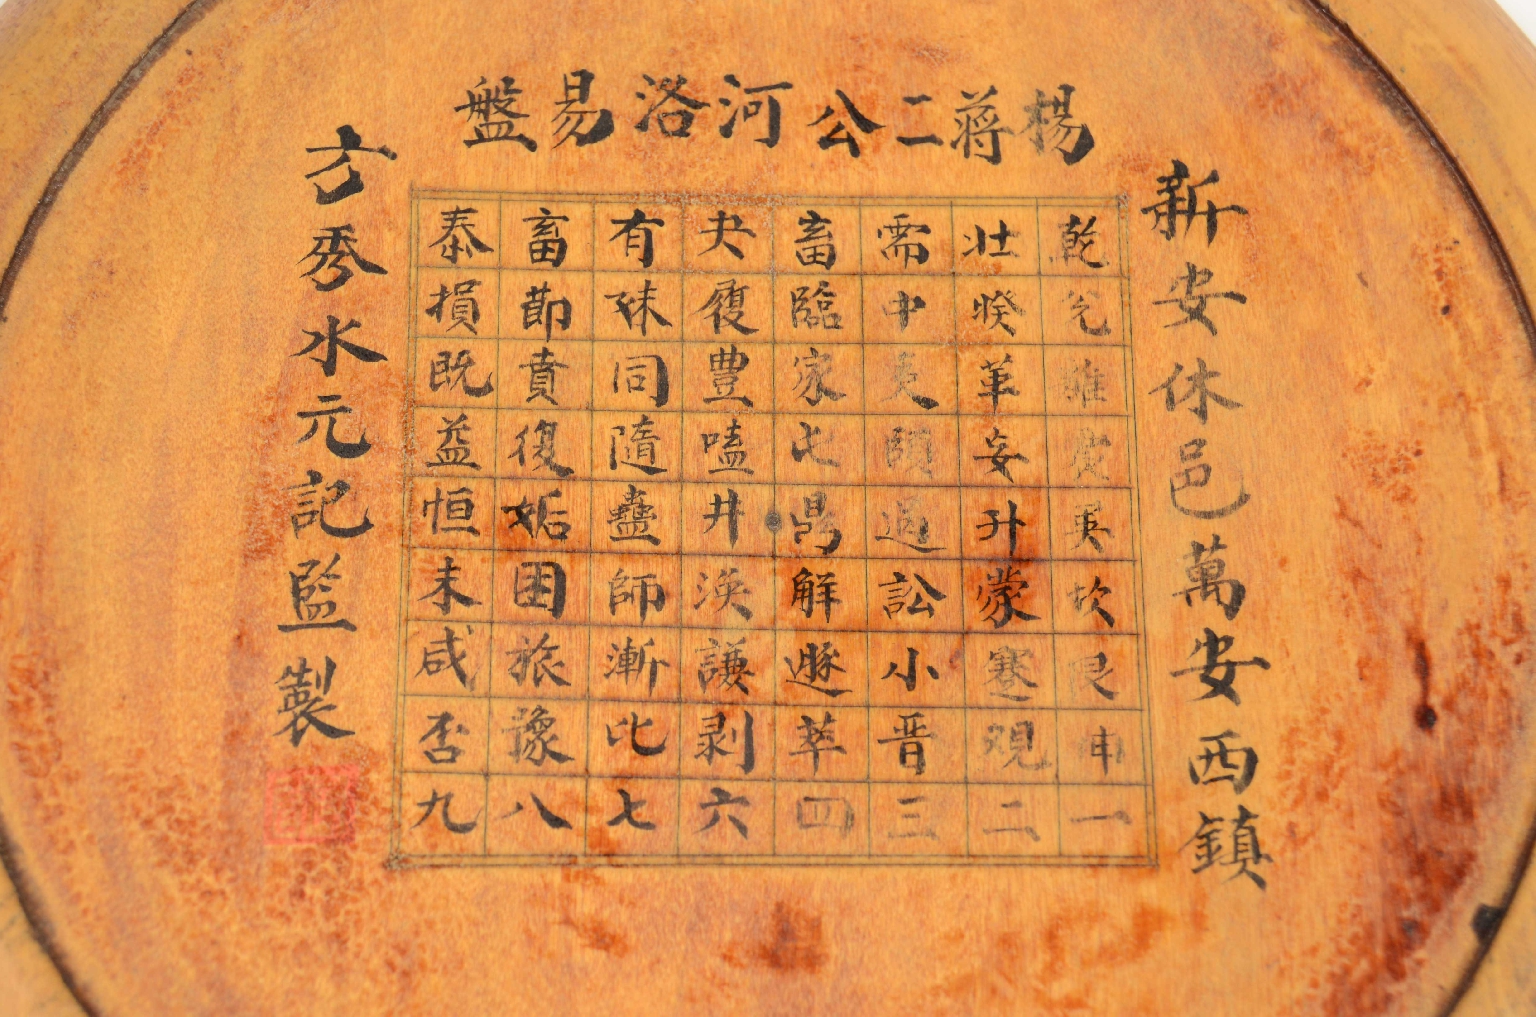 楊蔣二公河洛易盤
新安休邑萬安西鎮
乾兌離震巽坎艮坤一
壮睽革妄升蒙蹇观二
需中夷頤過訟小晋三
畜臨家屯鼎解遯萃四
夬履豊嗑井渙謙剥六
有妹同隨蠱師漸比七
畜節賁復姤困旅豫八
泰損既益恒未咸否九
方秀水元記監製